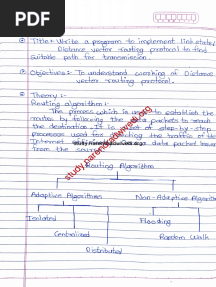 PDF
Title:- Write a program to implement link state/
Distance vector routing protocol to find
suitable path for transmission.
Objectives:- To understand working of Distance
vector routing protocol.
Theory :-
Routing algorithm :-
The process which is used to establish the
routes by following the data packets to reach
the destination. It is a set of step-by-step
processes used for directing the traffic of the
Internet data packet
from the source
Routing Algorithm
Adaptive Algorithms Non-Adaptive Algorithm
Isolated Flooding
Centralized Random Walk
Distributed